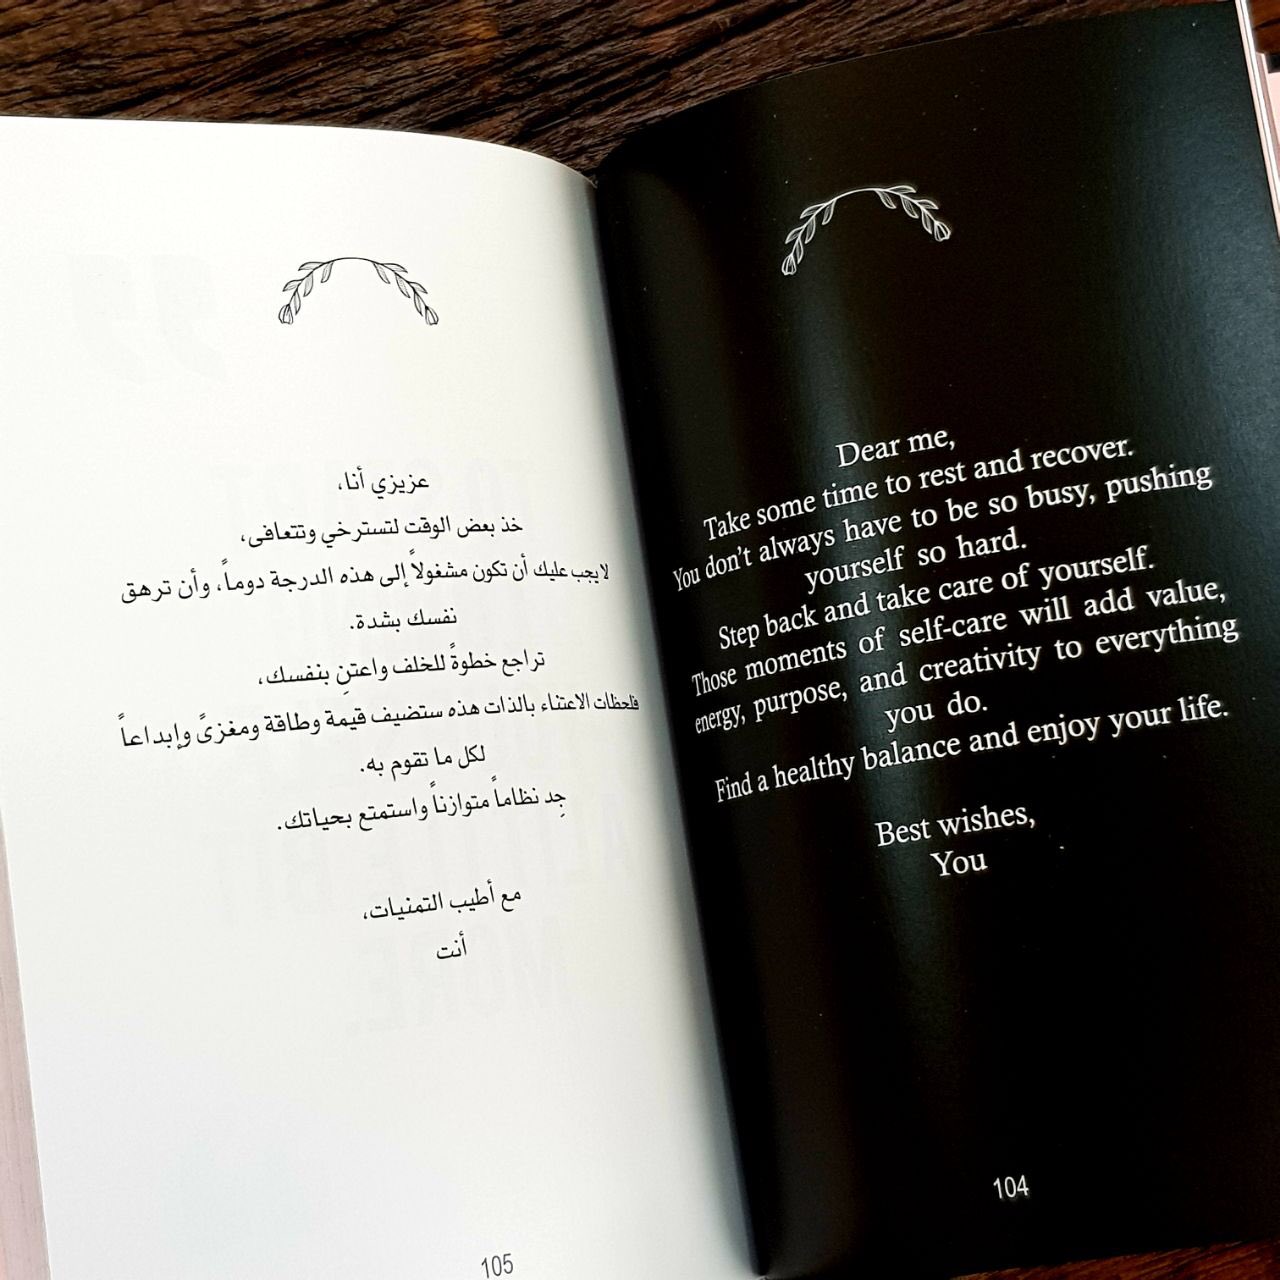 Dear me,
Take some time to rest and recover.
You don't always have to be so busy, pushing
yourself so hard.
Step back and take care of yourself.
Those moments of self-care will add value,
energy, purpose, and creativity to everything
you do.
Find a healthy balance and enjoy your life.
Best wishes,
You
104
عزيزي أنا،
خذ بعض الوقت لتسترخي وتتعافى،
لايجب عليك أن تكون مشغولاً إلى هذه الدرجة دوماً، وأن ترهق
نفسك بشدة.
تراجع خطوةً للخلف واعتنِ بنفسك،
فلحظات الاعتناء بالذات هذه ستضيف قيمة وطاقة ومغزىً وإبداعاً
لكل ما تقوم به.
جِد نظاماً متوازناً واستمتع بحياتك.
مع أطيب التمنيات،
أنت
105